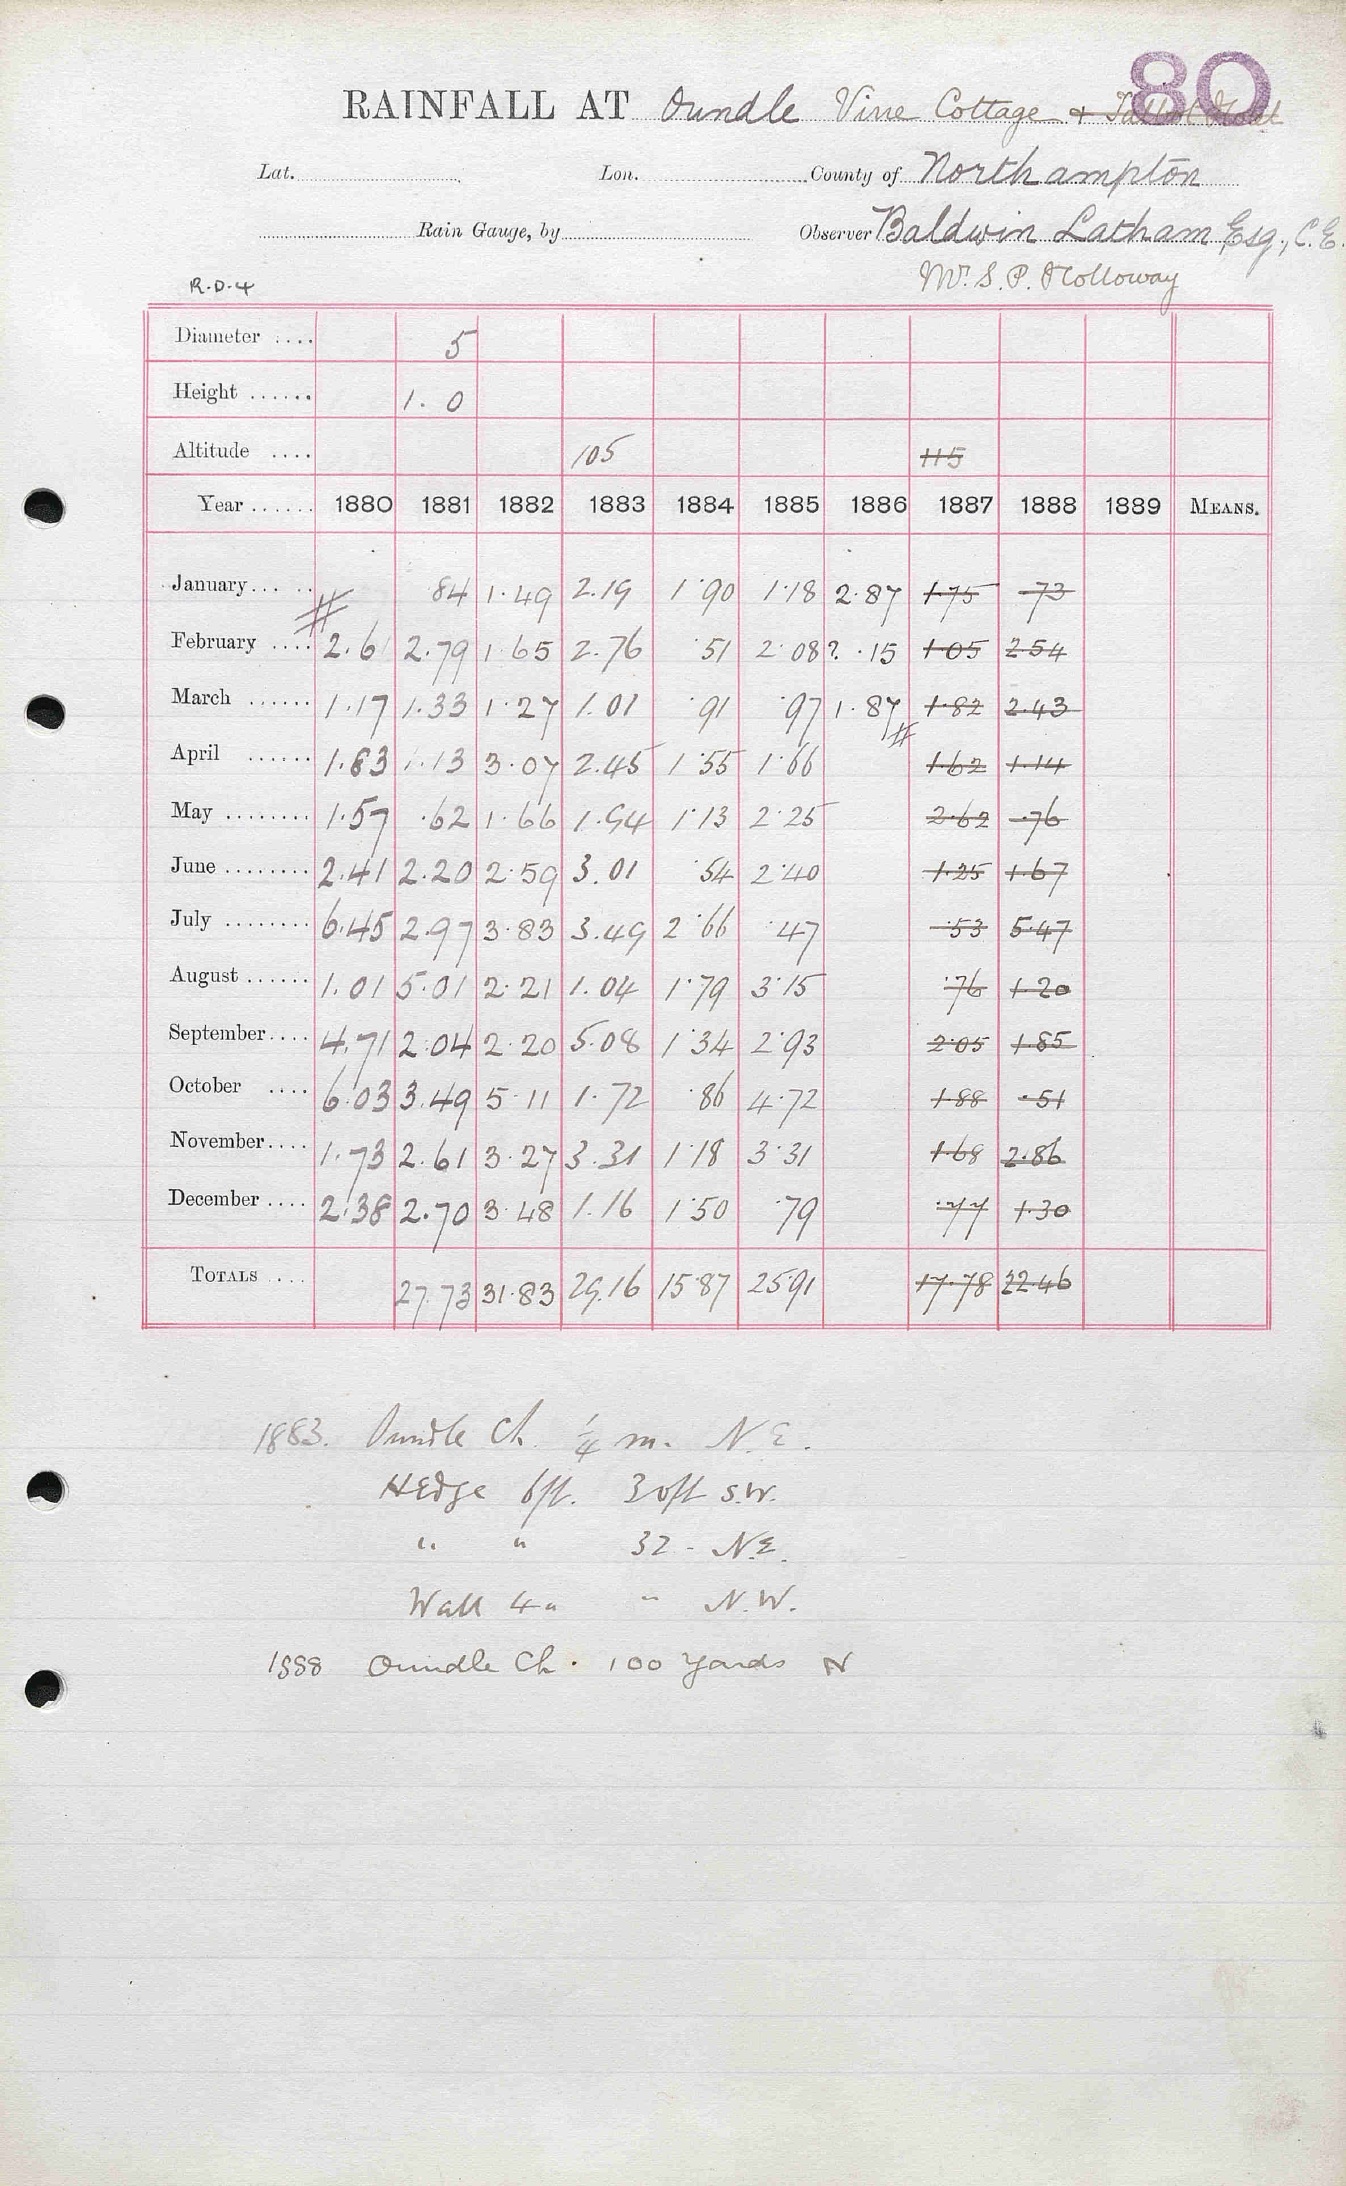 80
RAINFALL AT Oundle Vine Cottage + Talbot Hotel
Lat. Lon. County of Northampton
Rain Gauge, by Observer Baldwin Latham Esq., C.E.
Mr. S. P. Holloway
R.D.4
Diameter .... 5
Height ...... 1. 0
Altitude .... 105 115
Year ...... 1880 1881 1882 1883 1884 1885 1886 1887 1888 1889 MEANS.
January... .. # .84 1.49 2.19 1.90 1.18 2.87 1.75 .73
February .... 2.61 2.79 1.65 2.76 .51 2.08 ? .15 1.05 2.54
March ...... 1.17 1.33 1.27 1.01 .91 .97 1.87 # 1.82 2.43
April ...... 1.83 1.13 3.07 2.45 1.55 1.66 1.62 1.14
May ........ 1.57 .62 1.66 1.94 1.13 2.25 2.62 .76
June ........ 2.41 2.20 2.59 3.01 .54 2.40 1.25 1.67
July ........ 6.45 2.97 3.83 3.49 2.66 .47 .53 5.47
August ...... 1.01 5.01 2.21 1.04 1.79 3.15 .76 1.20
September.... 4.71 2.04 2.20 5.08 1.34 2.93 2.05 1.85
October .... 6.03 3.49 5.11 1.72 .86 4.72 1.88 .51
November.... 1.73 2.61 3.27 3.31 1.18 3.31 1.68 2.86
December .... 2.38 2.70 3.48 1.16 1.50 .79 .77 1.30
TOTALS .... 27.73 31.83 29.16 15.87 25.91 17.78 22.46
1883. Oundle Ch. 1/4 m. N.E.
Hedge 6ft. 30ft S.W.
" " 32 - N.E.
Wall 4 " " N.W.
1888 Oundle Ch. 100 Yards N